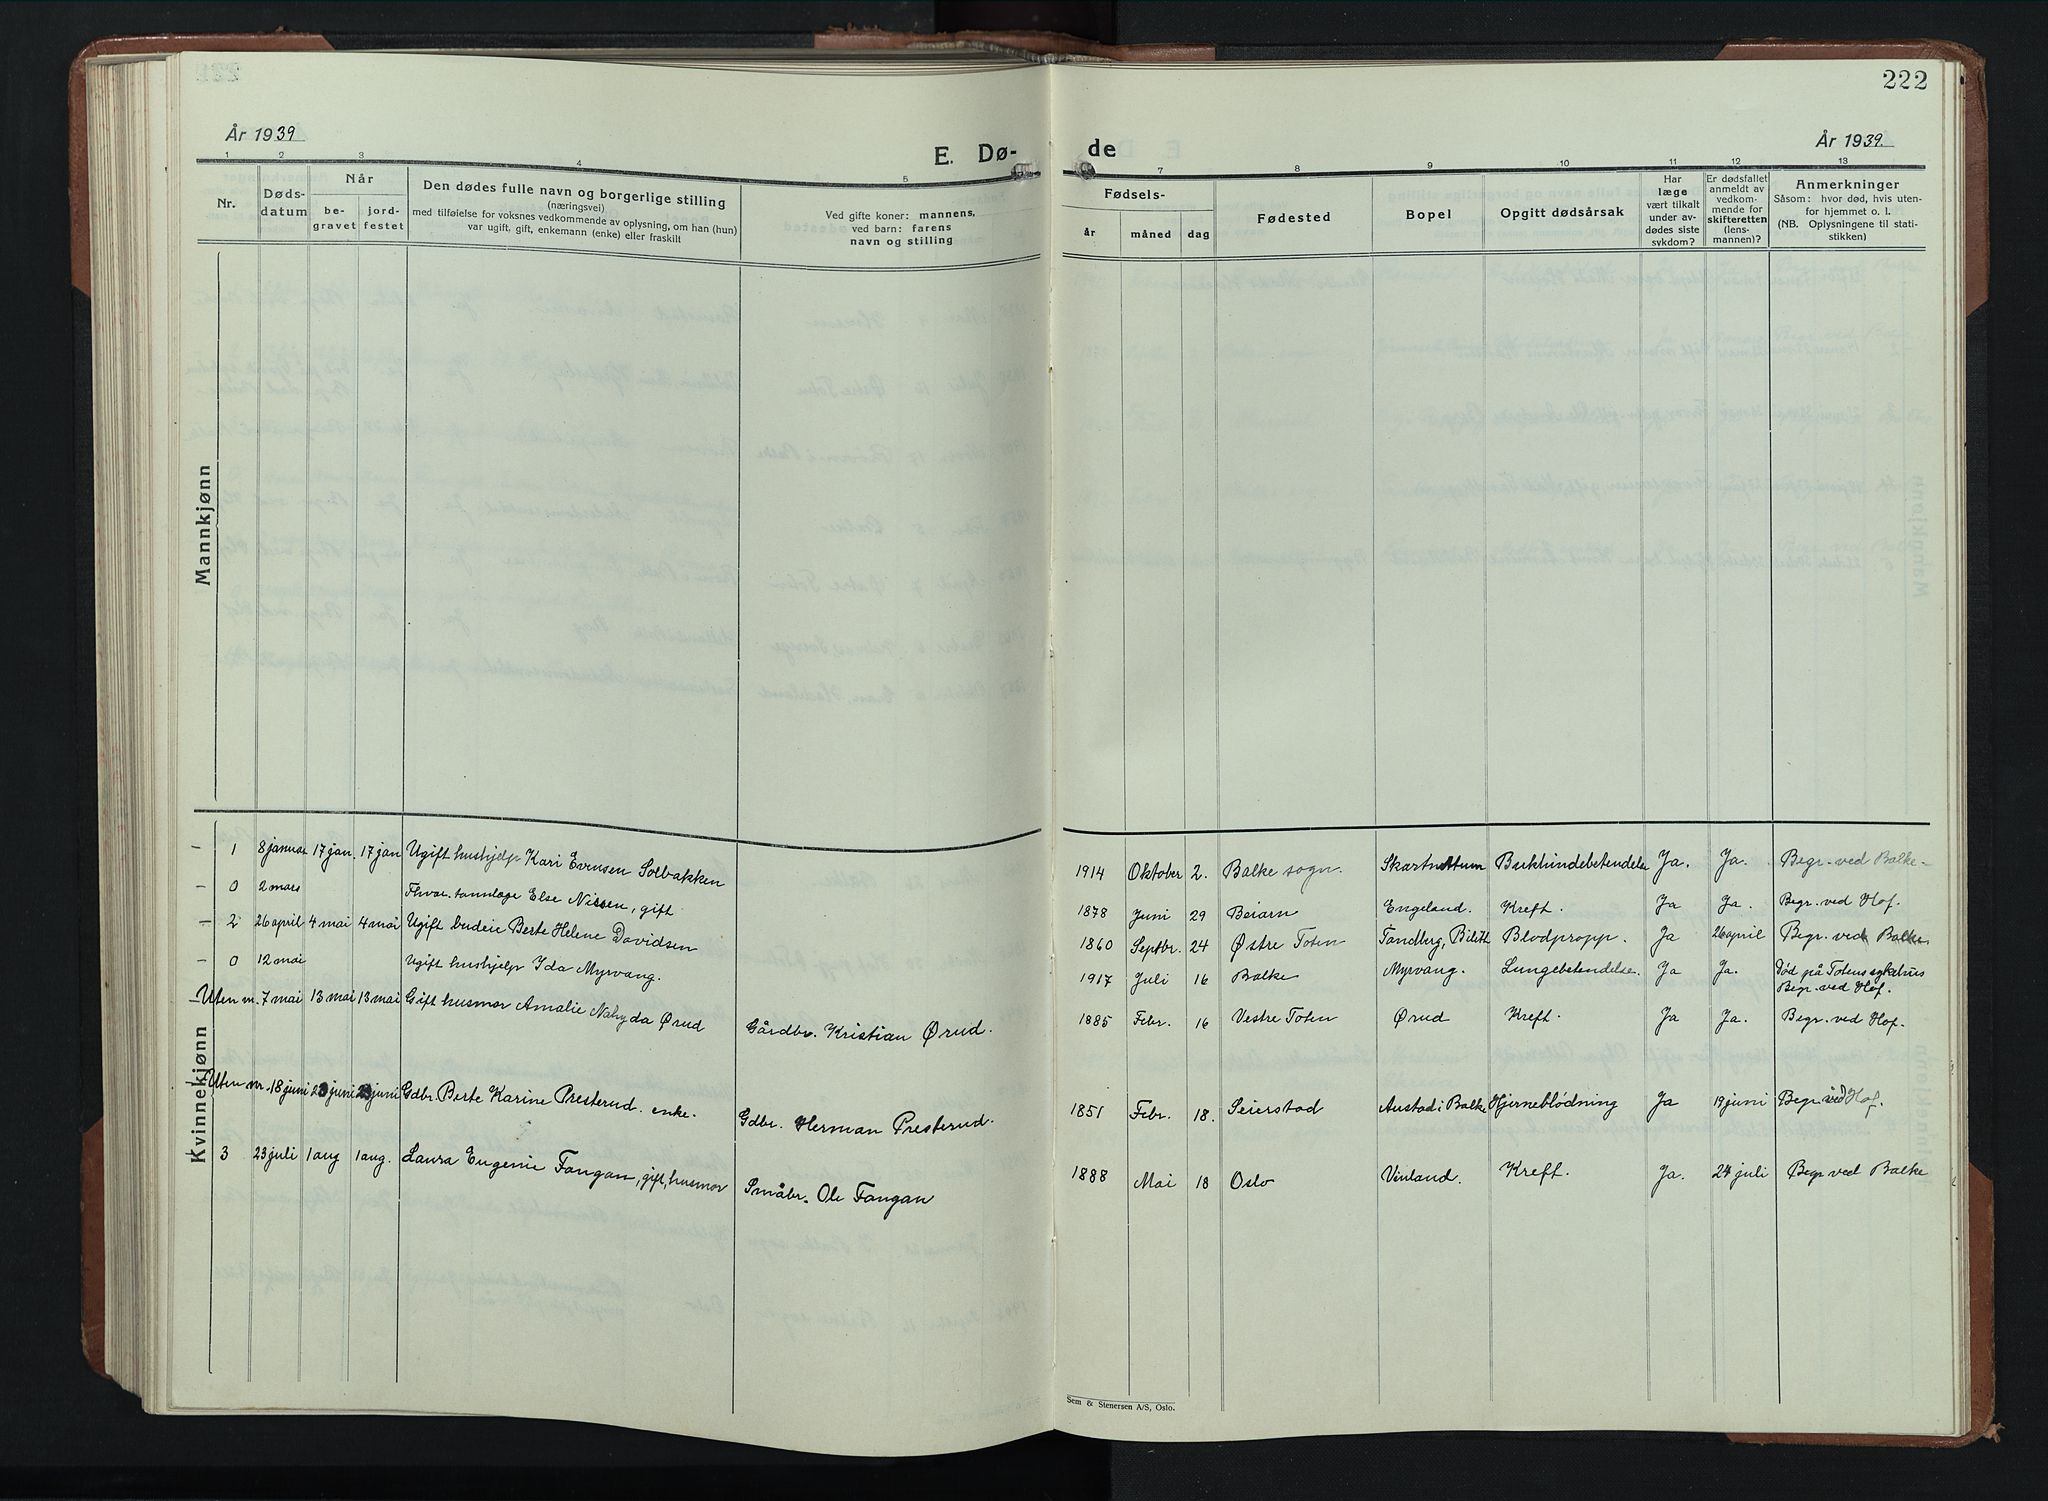 222
År 1939
År 1939.
E. Dø-
de
1 2 3 4 5
7 8 9 10 11 12 13
Nr.
Døds-
datum
Når
be-
gravet
jord-
festet
Den dødes fulle navn og borgerlige stilling
(næringsvei)
med tilføielse for voksnes vedkommende av oplysning, om han (hun)
var ugift, gift, enkemann (enke) eller fraskilt
Ved gifte koner: mannens,
ved barn: farens
navn og stilling
Fødsels-
år måned dag
Fødested
Bopel
Opgitt dødsårsak
Har
læge
vært tilkalt
under av-
dødes siste
sykdom?
Er dødsfallet
anmeldt av
vedkom-
mende for
skifteretten
(lens-
mannen)?
Anmerkninger
Såsom: hvor død, hvis uten-
for hjemmet o. l.
(NB. Oplysningene til stati-
stikken)
Mannkjønn
Kvinnekjønn
- 1 8 januar 17 jan. 17 jan Ugift hushjelp Kari Evensen Solbakken 1914 Oktober 2. Balke sogn. Skartnettum Bukhindebetendelse Ja. Ja. Begr. ved Balke
- 0 2 mars Fhvr. tannlege Else Nissen, gift 1878 Juni 29 Beiarn Engeland. Kreft. Ja Ja. Begr. ved Hof.
- 2 26 april 4 mai 4 mai Ugift budeie Berte Helene Davidsen 1860 Septbr. 24 Østre Toten Tandberg, Bilith Blodpropp. Ja 26 april Begr. ved Balke
- 0 12 mai Ugift hushjelp Ida Myrvang. 1917 Juli 16 Balke Myrvang. Lungebetendelse Ja Ja. Død på Totens sykehus
Begr. ved Hof.
Uten nr. 7 mai 13 mai 13 mai Gift husmor Amalie Nahyda Ørud Gårdbr. Kristian Ørud. 1885 Febr. 16 Vestre Toten Ørud Kreft. Ja Ja. Begr. ved Hof.
Uten nr. 18 juni 23 juni 23 juni Gdbr. Berte Karine Presterud. enke. Gdbr. Herman Presterud. 1851 Febr. 18. Seierstad Austad i Balke Hjerneblödning Ja 19 juni Begr. ved Hof.
3 23 juli 1 aug 1 aug. Laura Eugenie Fangan, gift, husmor Småbr. Ole Fangan 1888 Mai 18 Oslo Vinland. Kreft. Ja. 24 juli Begr. ved Balke
Sem & Stenersen A/S, Oslo.